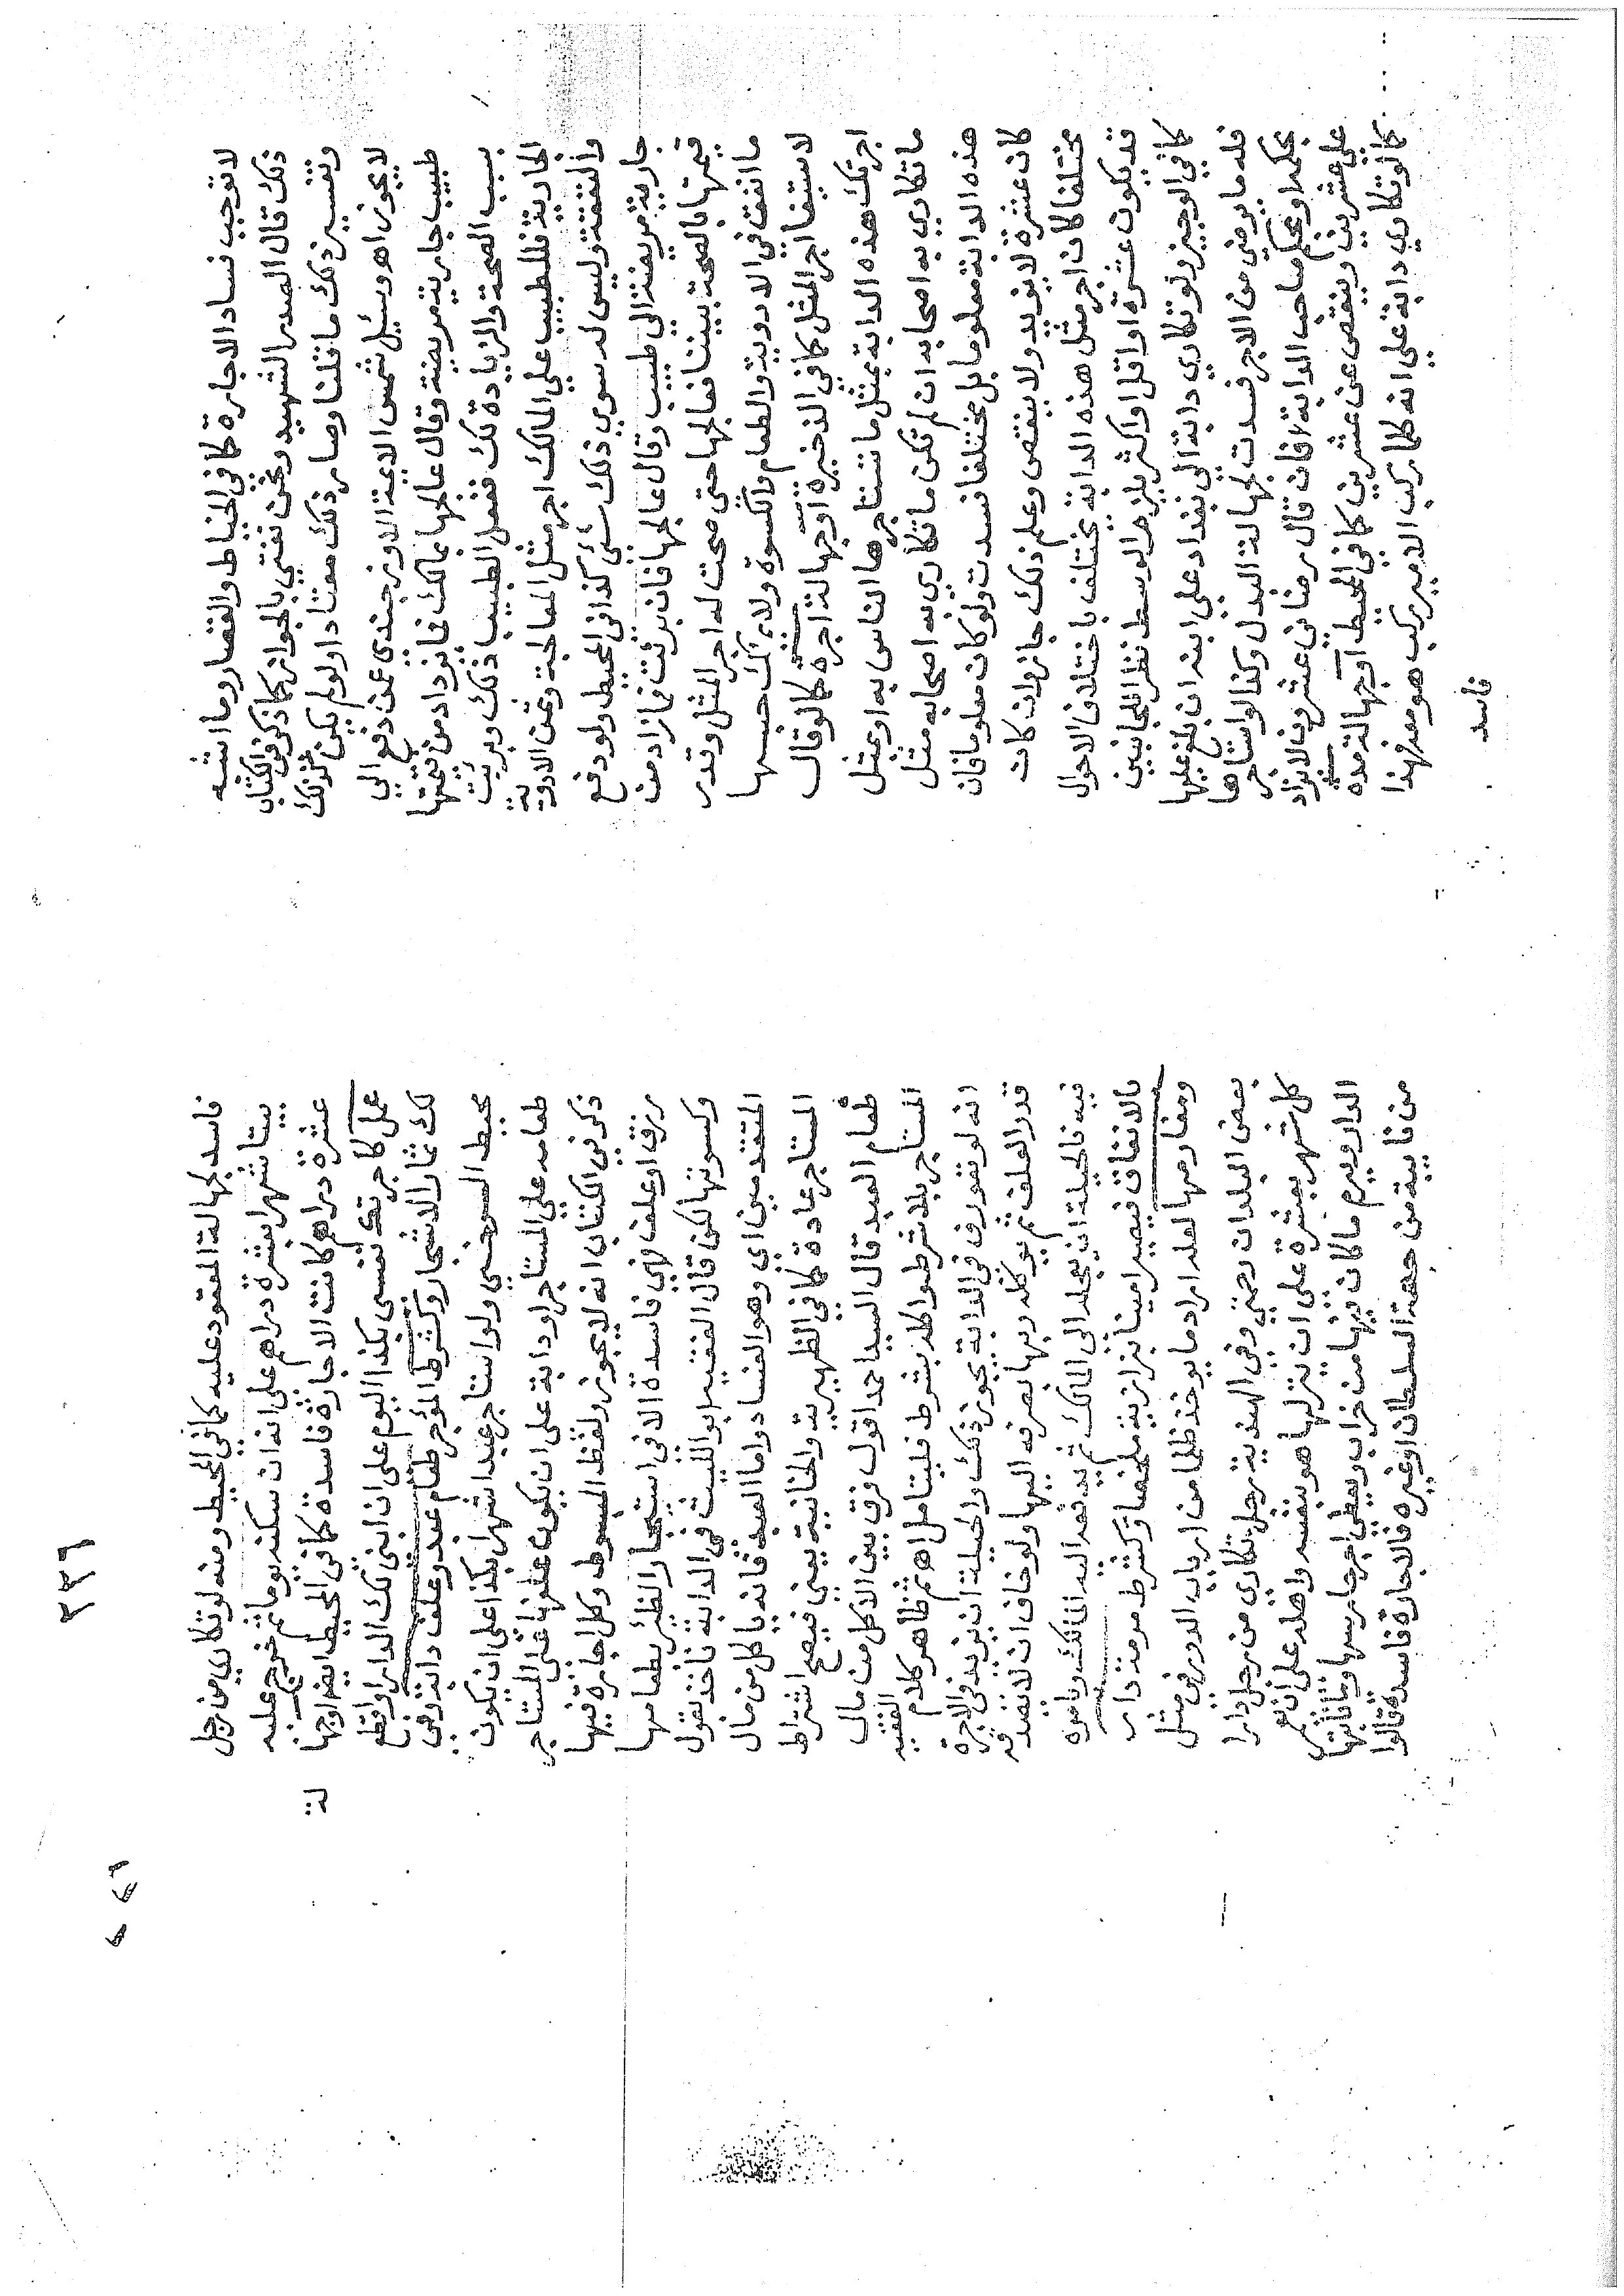 لا توجب فساد الاجارة كما في الخياط والقصار وما اشبه
ذلك قال الصدر الشهيد ونحن نفتي بالجواز كما ذكر في الكتاب
وتفسير ذلك ما قلنا وصار ذلك معتادا ولو لم يكن كذلك
لا يجوز اهـ وسئل شمس الايمة الاوزجندي عمن دفع الي
طبيب جارية مريضة وقال عالجها بمالك فما يزداد من قيمتها
بسبب الصحة والزيادة لك ففعل الطبيب ذلك وبرئت
الجارية فللطبيب علي المالك اجر مثل المعالجة وثمن الادوية
والنفقة وليس له سوي ذلك شئ كذا في المحيط ولو دفع
جارية مريضة الي طبيب وقال عالجها فان برئت فما زاد من
قيمتها بالصحة بيننا فعالجها حتى صحت له اجر المثل وقدر
ما انفق في الادوية والطعام والكسوة ولا يملك حبسها
لاستيفا اجر المثل كما في الذخيرة او جهالة اجرة كما لو قال
اجرتك هذه الدابة بمثل ما يستاجرها الناس به او بمثل
ما تكاري به اصحابه ان لم تكن ما تكاري به اصحابه مثل
هذه الدابة معلوما بل مختلفا فسدت ولو كان معلوما فان
كان عشرة لا يزيد ولا ينقص وعلم ذلك جاز وان كان
مختلفا كان اجر مثل هذه الدابة يختلف باختلاف الاحوال
قد يكون عشرة او اقل او اكثر يلزم الوسط نظرا للجانبين
كما في الوجيز ولو تكاري دابة الي بغداد علي انه ان بلغ عليها
فله ما يرضي من الاجر فسدت لجهالة البدل وكذا لو استاجرها
بحكمه او بحكم صاحب الدابة فان قال رضائي عشرون لا يزاد
علي عشرين وينقص عن عشرين كما في المحيط او جهالة مدة
كما لو تكاري دابة علي انه كلما ركب الامير يركب هو معه فهذا
فاسد
٢٣٦
٢٤٦
فاسد لجهالة المعقود عليه كما في المحيط ومنه لو تكاري من رجل
بيتا شهرا بعشرة دراهم علي انه ان سكنه يوما ثم خرج عليه
عشرة دراهم كانت الاجارة فاسدة كما في المحيط ايضا او جهالة
عمل كاجرتك نفسي بكذا اليوم علي ان ابني لك الدار او اقطع
لك ثمار الاشجار وكشرط المؤجر طعام عبد وعلف دابة وفي
محيط السرخسي ولو استاجر عبدا شهرا بكذا علي ان يكون
طعامه علي المستاجر او دابة علي ان يكون علفها علي المستاجر
ذكر في الكتاب انه لا يجوز ولفظ المبسوط وكل اجازة فيها
رزق او علف فهي فاسدة الا في استيجار الظئر بطعامها
وكسوتها لكن قال الفقيه ابو الليث في الدابة ناخذ بقول
المتقدمين اي وهو الفساد واما العبد فانه ياكل من مال
المستاجر عادة كما في الظهيرية والخانية يعني فيصح اشتراط
طعام العبد قال السيد احمد اقول فرق بين الاكل من مال
المستاجر بلا شرط واكله بشرط فليتامل اهـ ثم ظاهر كلام الفقيه
انه لو تعورف في الدابة يجوز ذلك والحيلة ان يزيد في الاجرة
قدر العلف ثم يوكله ربها بصرفه اليها ولو خاف ان لا يصدقه
فيه فالحيلة ان يعجله الي المالك ثم يدفعه اليه المالك ويامره
بالانفاق فيصير امينا بزازية ملخصا وكشرط مرمة دار
ومغارمها لعله اراد ما يوخذ ظلما من ارباب الدور في مثل
بعض البلدان رحمتي وفي الهندية رجل تكاري من رجل دارا
كل شهر بعشرة علي ان ينزلها هو بنفسه واهله علي ان يعمر
الدار ويرم ما كان فيها من خراب ويعطي اجر حارسها وما نابها
من نايبة من جهة السلطان او غيره فالاجارة فاسدة قالوا